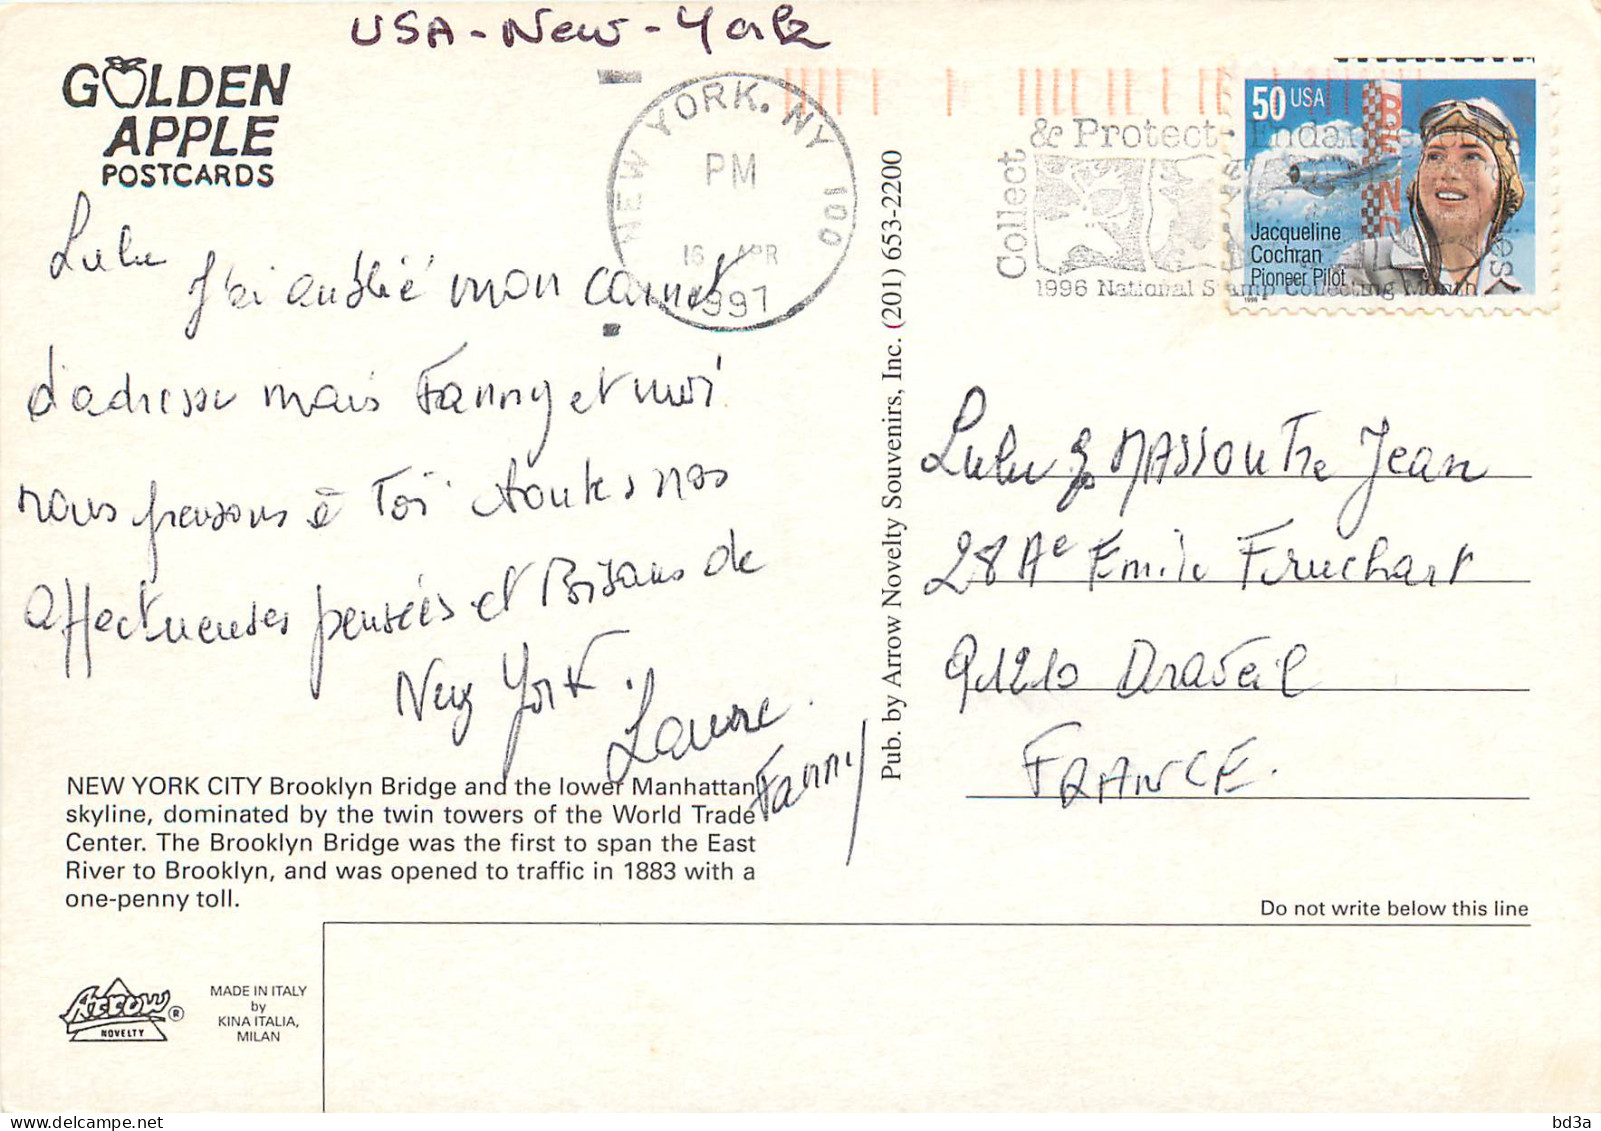 USA - New - York
GOLDEN
APPLE
POSTCARDS
NEW YORK, NY 100
PM
16 APR
1997
Collect & Protect Endangered Species
1996 National Stamp Collecting Month
50 USA
BEND
Jacqueline
Cochran
Pioneer Pilot
1996
Lulu
J'ai oublié mon carnet
d'adresse mais Fanny et moi
nous pensons à Toi toutes nos
affectueuses pensées et Bisous de
New York.
Laure
Fanny
Pub. by Arrow Novelty Souvenirs, Inc. (201) 653-2200
Lulu MASSOUTRe Jean
28 Ae Emile Fruchart
91210 Draveil
FRANCE.
NEW YORK CITY Brooklyn Bridge and the lower Manhattan
skyline, dominated by the twin towers of the World Trade
Center. The Brooklyn Bridge was the first to span the East
River to Brooklyn, and was opened to traffic in 1883 with a
one-penny toll.
Do not write below this line
Arrow ®
NOVELTY
MADE IN ITALY
by
KINA ITALIA,
MILAN
bd3a